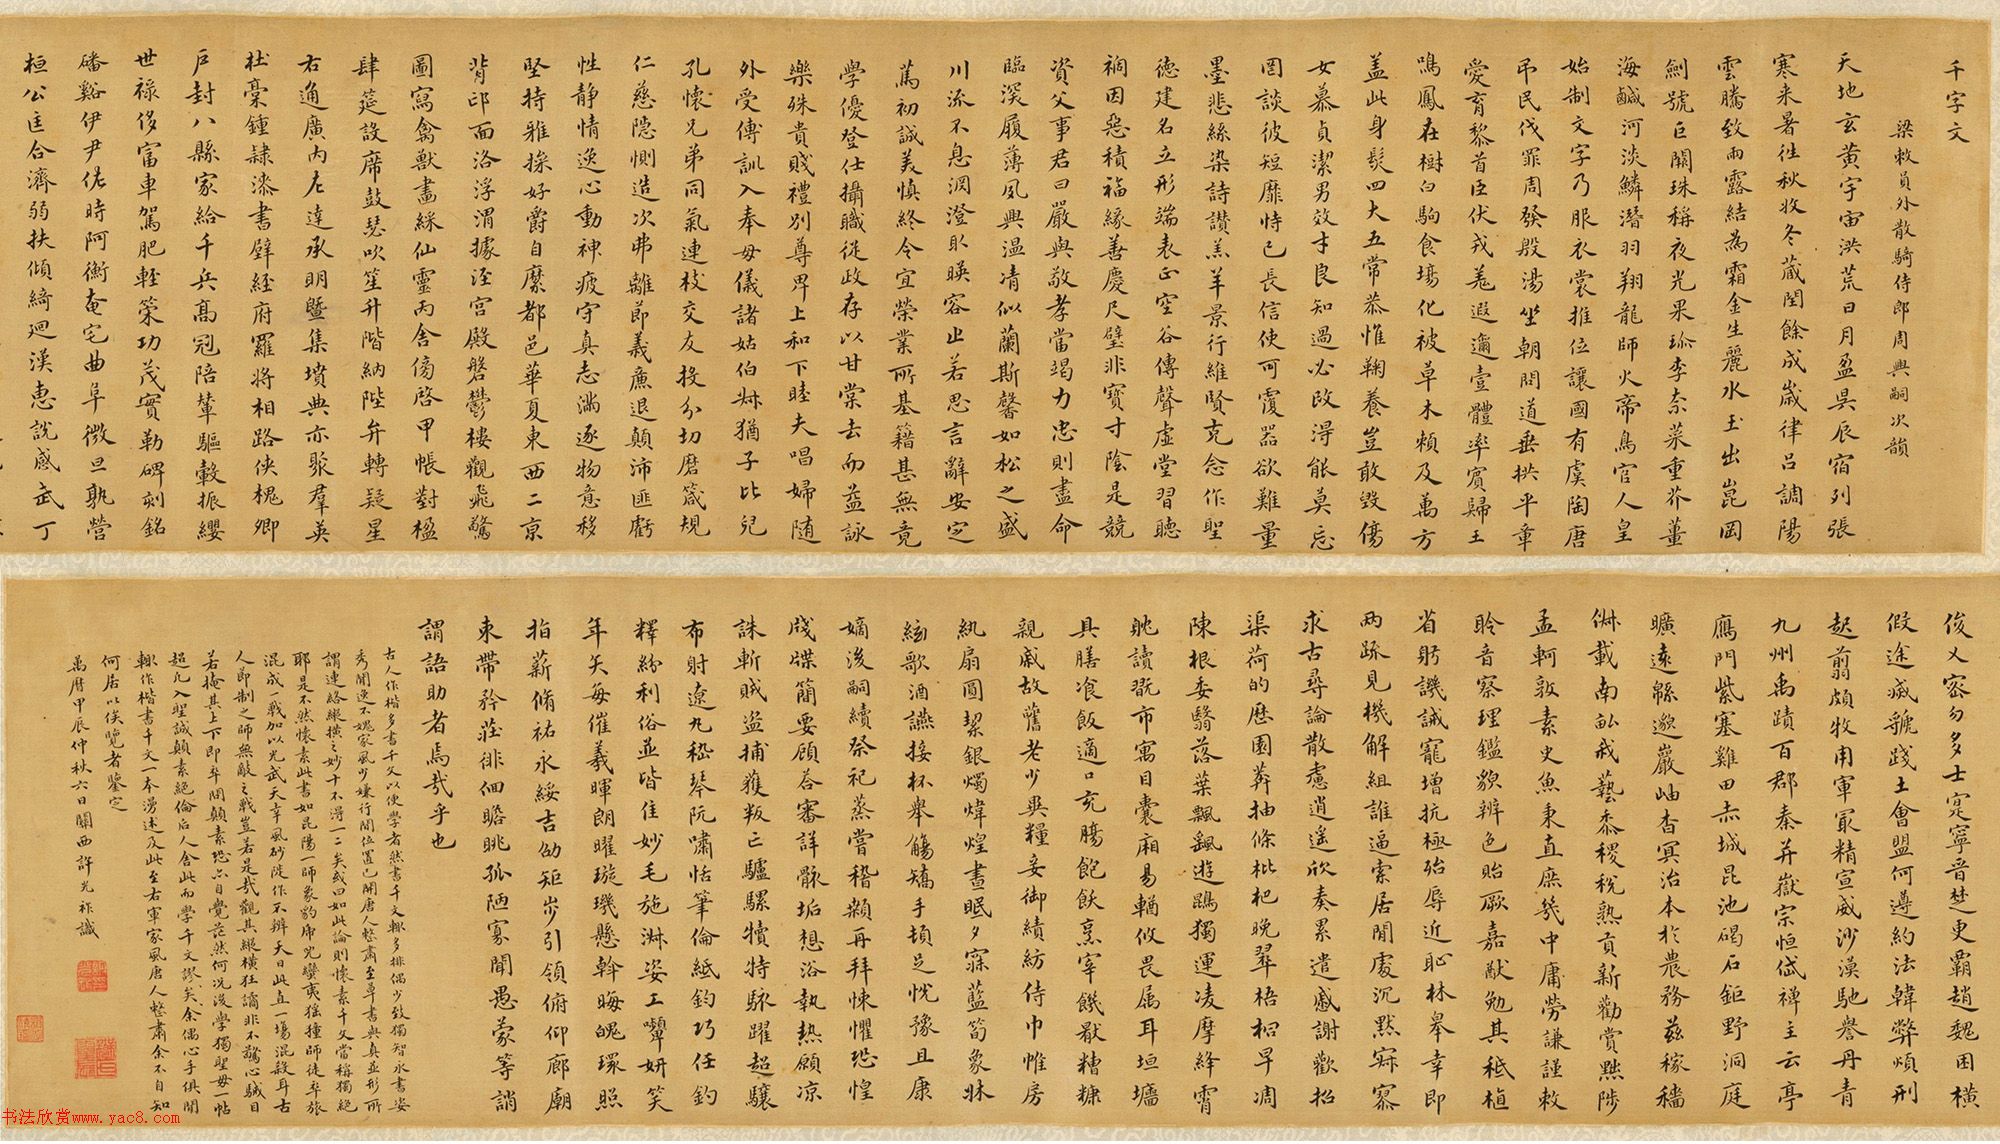 千字文
梁敕員外散騎侍郎周興嗣次韻
天地玄黃宇宙洪荒日月盈昃辰宿列張
寒来暑往秋收冬蔵閏餘成嵗律吕調陽
雲騰致雨露結為霜金生麗水玉出崑岡
劍號巨闕珠稱夜光果珎李柰菜重芥薑
海鹹河淡鱗潛羽翔龍師火帝鳥官人皇
始制文字乃服衣裳推位讓國有虞陶唐
吊民伐罪周發殷湯坐朝問道垂拱平章
愛育黎首臣伏戎羌遐邇壹體率賓歸王
鳴鳳在樹白駒食場化被草木頼及萬方
盖此身髮四大五常恭惟鞠養豈敢毀傷
女慕貞潔男效才良知過必改得能莫忘
罔談彼短靡恃己長信使可覆器欲難量
墨悲絲染詩讃羔羊景行維賢克念作聖
徳建名立形端表正空谷傳聲虛堂習聽
禍因惡積福緣善慶尺璧非寶寸陰是競
資父事君曰嚴與敬孝當竭力忠則盡命
臨深履薄夙興温凊似蘭斯馨如松之盛
川流不息淵澄取暎容止若思言辭安定
篤初誠美慎終令宜榮業所基籍甚無竟
學優登仕攝職從政存以甘棠去而益詠
樂殊貴賤禮别尊卑上和下睦夫唱婦随
外受傅訓入奉母儀諸姑伯叔猶子比兒
孔懷兄弟同氣連枝交友投分切磨箴規
仁慈隠惻造次弗離節義廉退顛沛匪虧
性静情逸心動神疲守真志滿逐物意移
堅持雅操好爵自縻都邑華夏東西二京
背邙面洛浮渭據涇宫殿磐鬱樓觀飛驚
圖寫禽獸畫綵仙靈丙舍傍啓甲帳對楹
肆筵設席鼓瑟吹笙升階納陛弁轉疑星
右通廣内左達承明曁集墳典亦聚羣英
杜稾鍾隷漆書壁經府羅將相路俠槐卿
户封八縣家給千兵髙冠陪輦驅轂振纓
世祿侈富車駕肥輕策功茂實勒碑刻銘
磻谿伊尹佐時阿衡奄宅曲阜微旦孰營
桓公匡合濟弱扶傾綺迴漢惠說感武丁
俊乂密勿多士寔寧晉楚更覇趙魏困橫
假途滅虢踐土會盟何遵約法韓弊煩刑
起翦頗牧用軍冣精宣威沙漠馳譽丹青
九州禹蹟百郡秦并嶽宗恒岱禪主云亭
鴈門紫塞雞田赤城昆池碣石鉅野洞庭
曠遠緜邈巖岫杳冥治本於農務茲稼穡
俶載南畝我藝黍稷稅熟貢新勸賞黜陟
孟軻敦素史魚秉直庶幾中庸勞謙謹敕
聆音察理鑑貌辨色貽厥嘉猷勉其祗植
省躬譏誡寵增抗極殆辱近恥林皋幸即
两疏見機解組誰逼索居閒處沉默寂寥
求古尋論散慮逍遥欣奏累遣慼謝歡招
渠荷的歴園莽抽條枇杷晚翠梧桐早凋
陳根委翳落葉飄颻遊鵾獨運凌摩絳霄
耽讀翫市寓目囊廂易輶攸畏属耳垣墻
具膳飡飯適口充腸飽飫烹宰饑猒糟糠
親戚故舊老少異糧妾御績紡侍巾帷房
紈扇圓絜銀燭煒煌晝眠夕寐藍筍象牀
絃歌酒讌接杯舉觴矯手頓足悅豫且康
嫡後嗣續祭祀蒸嘗稽顙再拜悚懼恐惶
牋牒簡要顧答審詳骸垢想浴執熱願凉
誅斬賊盗捕獲叛亡驢騾犢特駭躍超驤
布射遼丸嵇琴阮嘯恬筆倫紙鈞巧任釣
釋紛利俗並皆佳妙毛施淑姿工顰妍笑
年矢每催羲暉朗曜璇璣懸斡晦魄環照
指薪脩祐永綏吉劭矩步引領俯仰廊廟
束帶矜莊徘徊瞻眺孤陋寡聞愚蒙等誚
謂語助者焉哉乎也
古人作楷多書千文以便學者然書千文輙多排偶少致獨智永書姿
秀閒逸不媿家風少嫌行間位置已開唐人整肅至草書與真並形所
謂連絡縱横之妙十不得一二矣或曰如此論則懷素千文當稱獨絕
耶是不然懷素此書如昆陽一師象豹席兕蠻夷猺獞師徒卒旅
混成一戰加以光武天幸風砂陡作不辨天日此直一塲混殺耳古
人節制之師無敵之戰豈若是哉觀其縱橫狂譎非不驚心駴目
若掩其上下即年間顛素恐亦自覺茫然何况後學獨聖母一帖
超凡入聖誠顛素絕倫后人舍此而學千文謬矣余偶心手俱閒
輙作楷書千文一本漫述及此至右軍家風唐人整肅余不自知
何居以俟覽者鑒定
萬曆甲辰仲秋六日關西許光祚識
书法欣赏www.yac8.com